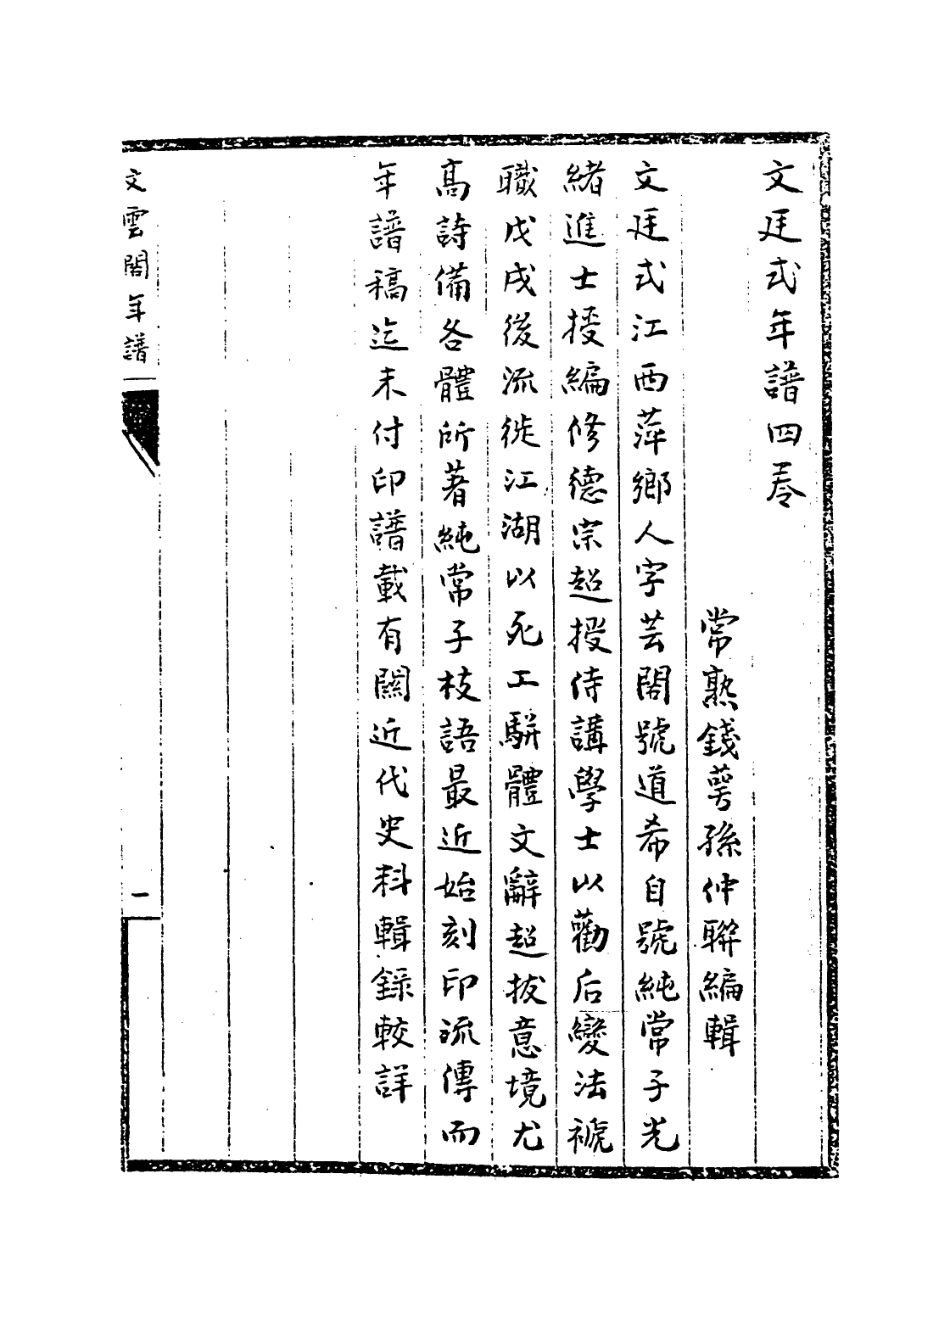 文廷式年譜四卷
常熟錢萼孫仲聯編輯
文廷式江西萍鄉人字芸閣號道希自號純常子光
緒進士授編修德宗超授侍講學士以勸后變法褫
職戊戌後流徙江湖以死工駢體文辭超拔意境尤
高詩備各體所著純常子枝語最近始刻印流傳而
年譜稿迄未付印譜載有關近代史料輯錄較詳
文雲閣年譜
一